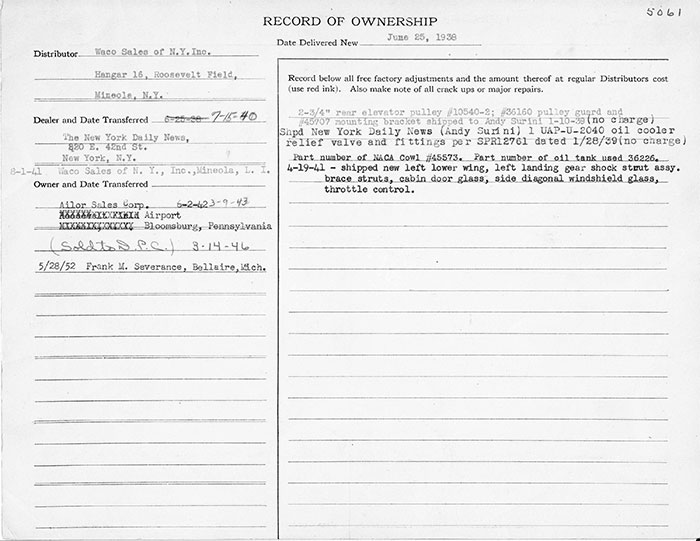 5061
RECORD OF OWNERSHIP
Date Delivered New June 25, 1938
Distributor Waco Sales of N.Y.Inc.
Hangar 16, Roosevelt Field,
Mineola, N.Y.
Dealer and Date Transferred 6-25-38 7-15-40
The New York Daily News,
220 E. 42nd St.
New York, N.Y.
8-1-41 Waco Sales of N. Y., Inc., Mineola, L. I.
Owner and Date Transferred
Ailor Sales Corp. 6-2-42 3-9-43
Airport
Bloomsburg, Pennsylvania
(Sold to D.P.C.) 3-14-46
5/28/52 Frank M. Severance, Bellaire, Mich.
Record below all free factory adjustments and the amount thereof at regular Distributors cost
(use red ink). Also make note of all crack ups or major repairs.
2-3/4" rear elevator pulley #10540-2; #36160 pulley guard and
#45707 mounting bracket shipped to Andy Surini 1-10-39(no charge)
Shpd New York Daily News (Andy Surini) 1 UAP-U-2040 oil cooler
relief valve and fittings per SPR12761 dated 1/28/39(no charge)
Part number of NACA Cowl #45573. Part number of oil tank used 36226.
4-19-41 - shipped new left lower wing, left landing gear shock strut assy.
brace struts, cabin door glass, side diagonal windshield glass,
throttle control.